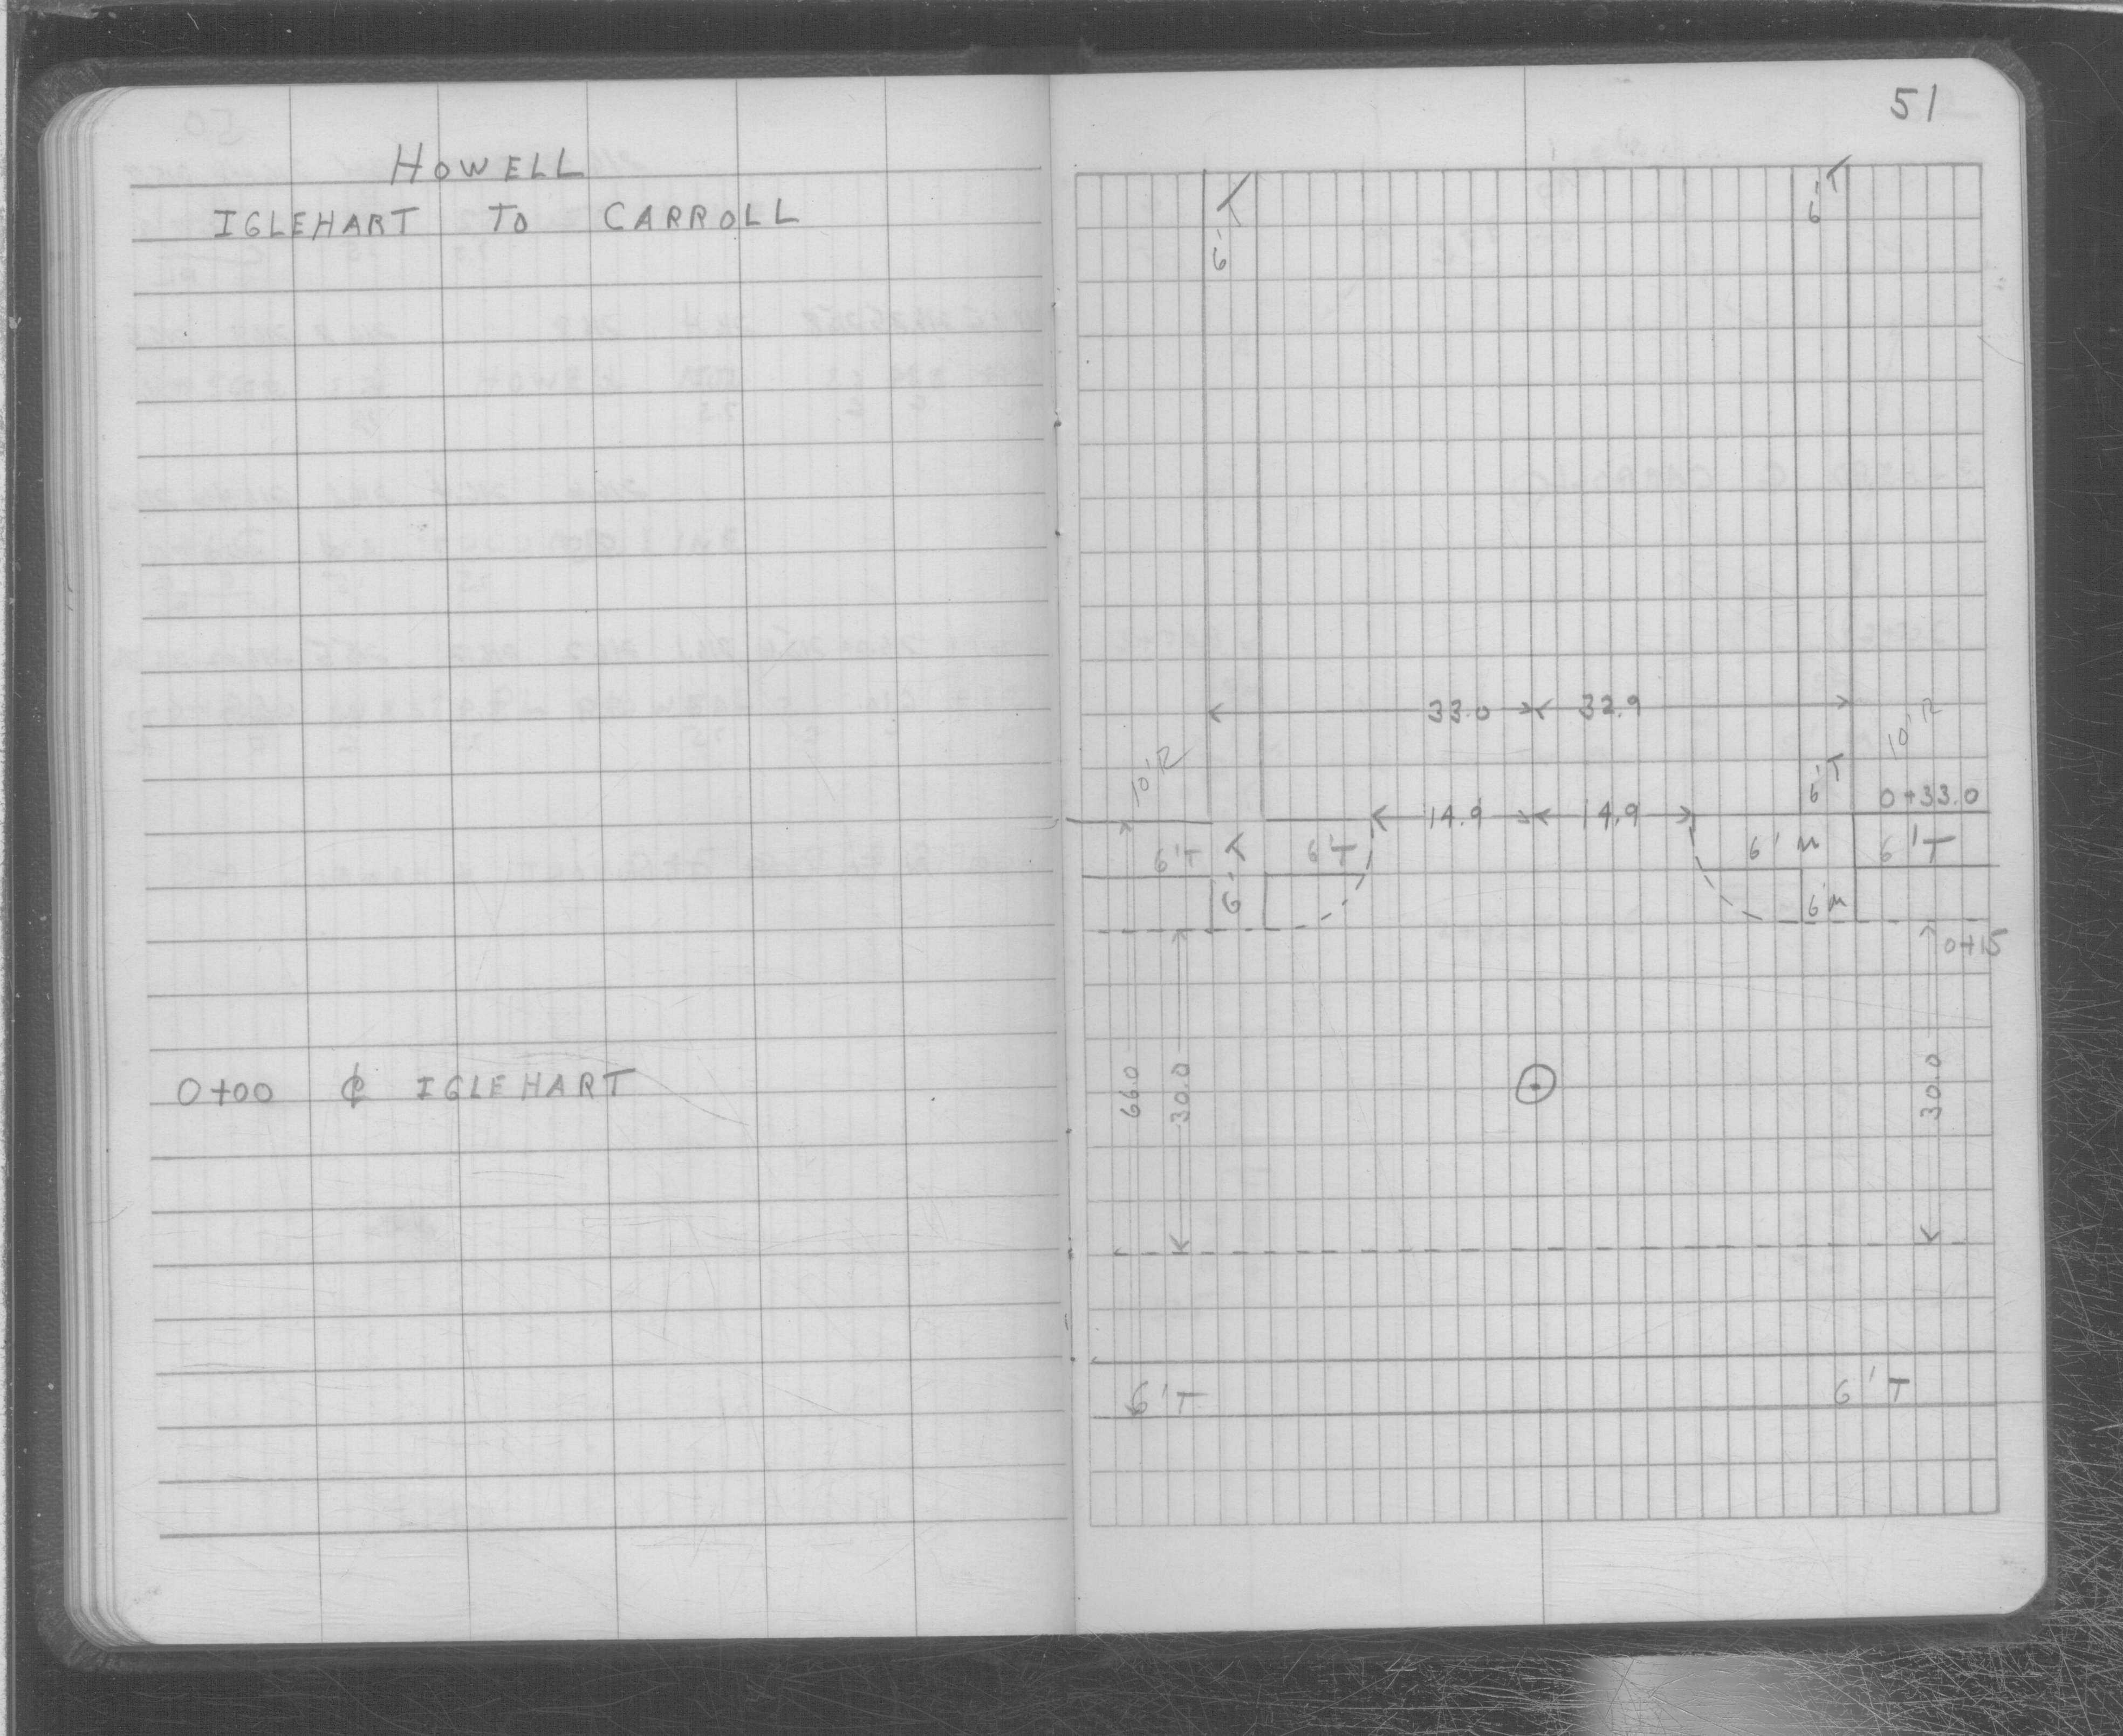 HOWELL
IGLEHART TO CARROLL
0+00 ₵ IGLEHART
51
6'T 6'T
33.0 32.9
10'R 10'R
6'T 0+33.0
14.9 14.9
6'T 6'T 6'T 6'M 6'T
6'M
0+15
66.0 30.0 30.0
6'T 6'T